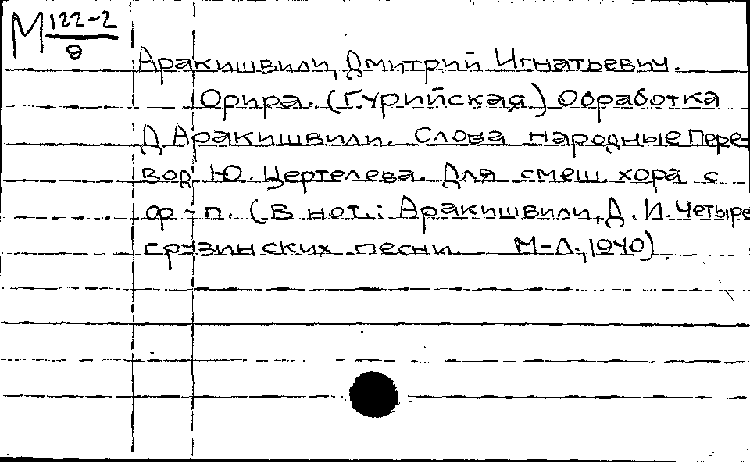 М 122-2
8
Аракишвили, Дмитрий Игнатьевич.
Орира. (Гурийская) Обработка
Д Аракишвили. Слова народные Пере-
вод Ю. Цертелева. Для смеш. хора с
ф-п. (В нот.: Аракишвили, Д. И. Четыре
грузинских песни М-Л., 1940)